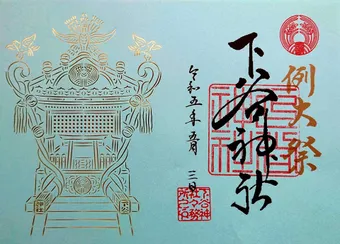 例大祭
下谷神社
令和五年五月三日